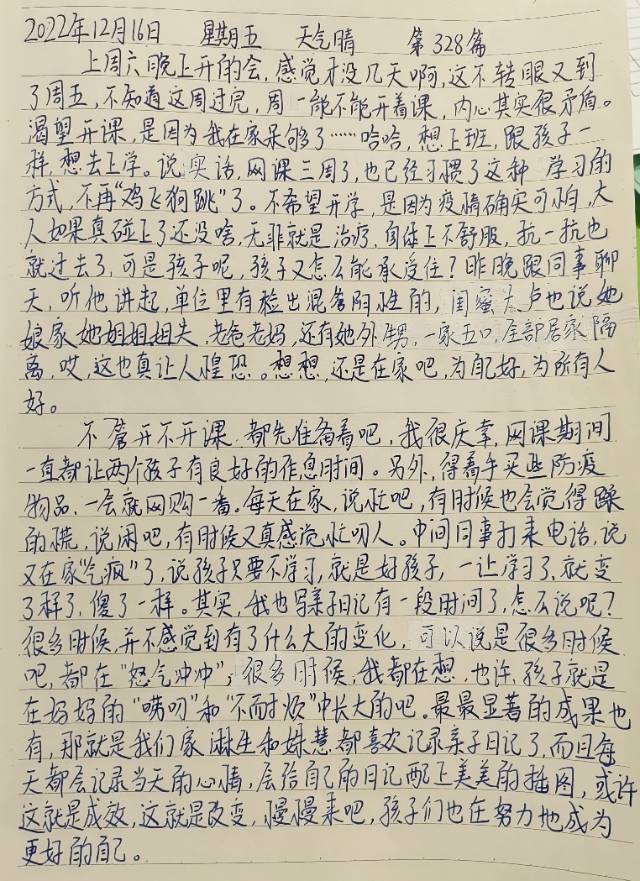 2022年12月16日 星期五 天气晴 第328篇
上周六晚上开的会,感觉才没几天啊,这不转眼又到
了周五,不知道这周过完,周一能不能开着课,内心其实很矛盾。
渴望开课,是因为我在家呆够了……哈哈,想上班,跟孩子一
样,想去上学。说实话,网课三周了,也已经习惯了这种学习的
方式,不再“鸡飞狗跳”了。不希望开学,是因为疫情确实可怕,大
人如果真碰上了还没啥,无非就是治疗,身体上不舒服,抗一抗也
就过去了,可是孩子呢,孩子又怎么能承受住?昨晚跟同事聊
天,听他讲起,单位里有检出混管阳性的,闺蜜大卢也说她
娘家她姐姐姐夫,老爸老妈,还有她外甥,一家五口,全部居家隔
离,哎,这也真让人惶恐。想想,还是在家吧,为自己好,为所有人
好。
不管开不开课,都先准备着吧,我很庆幸,网课期间
一直都让两个孩子有良好的作息时间。另外,得着手买些防疫
物品,一会就网购一番。每天在家,说忙吧,有时候也会觉得躁
的慌,说闲吧,有时候又真感觉忙叨人。中间同事打来电话,说
又在家“气疯”了,说孩子只要不学习,就是好孩子,一让学习了,就变
了样了,傻了一样。其实,我也写亲子日记有一段时间了,怎么说呢?
很多时候,并不感觉到有了什么大的变化,可以说是很多时候
吧,都在“怒气冲冲”,很多时候,我都在想,也许,孩子就是
在妈妈的“唠叨”和“不耐烦”中长大的吧。最最显著的成果也
有,那就是我们家淋生和姝慧都喜欢记录亲子日记了,而且每
天都会记录当天的心情,会给自己的日记配上美美的插图,或许
这就是成效,这就是改变,慢慢来吧,孩子们也在努力地成为
更好的自己。